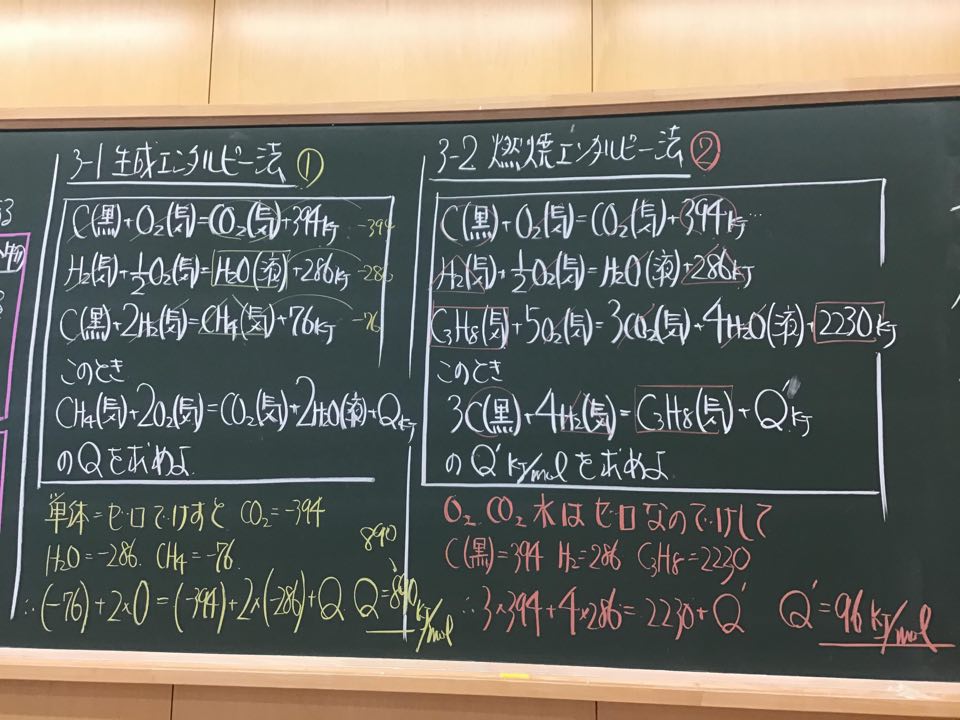 3-1 生成エンタルピー法 ①
C(黒)+O₂(気)=CO₂(気)+394KJ -394
H₂(気)+½O₂(気)=H₂O(液)+286KJ -286
C(黒)+2H₂(気)=CH₄(気)+76KJ -76
このとき
CH₄(気)+2O₂(気)=CO₂(気)+2H₂O(液)+QKJ
のQをおめよ
単体=ゼロでけすと CO₂=-394
H₂O=-286 CH₄=-76
890
∴(-76)+2×0=(-394)+2×(-286)+Q Q=890KJ/mol
3-2 燃焼エンタルピー法 ②
C(黒)+O₂(気)=CO₂(気)+394KJ
H₂(気)+½O₂(気)=H₂O(液)+286KJ
C₃H₈(気)+5O₂(気)=3CO₂(気)+4H₂O(液)+2230KJ
このとき
3C(黒)+4H₂(気)=C₃H₈(気)+Q'KJ
のQ'KJ/molをおめよ
O₂ CO₂ 水はゼロなのでけして
C(黒)=394 H₂=286 C₃H₈=2230
∴3×394+4×286=2230+Q' Q'=96KJ/mol